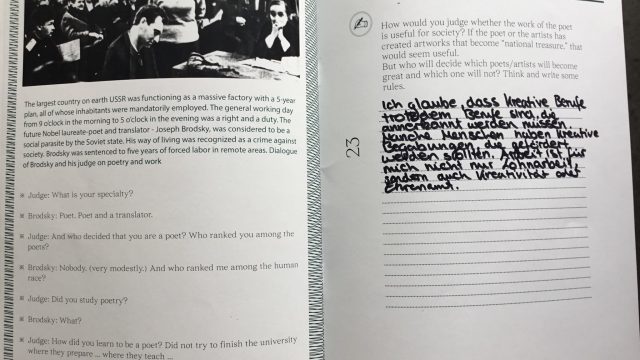 The largest country on earth USSR was functioning as a massive factory with a 5-year
plan, all of whose inhabitants were mandatorily employed. The general working day
from 9 o'clock in the morning to 5 o'clock in the evening was a right and a duty. The
future Nobel laureate-poet and translator - Joseph Brodsky, was considered to be a
social parasite by the Soviet state. His way of living was recognized as a crime against
society. Brodsky was sentenced to five years of forced labor in remote areas. Dialogue
of Brodsky and his judge on poetry and work
※ Judge: What is your specialty?
※ Brodsky: Poet. Poet and a translator.
※ Judge: And who decided that you are a poet? Who ranked you among the
poets?
※ Brodsky: Nobody. (very modestly.) And who ranked me among the human
race?
※ Judge: Did you study poetry?
※ Brodsky: What?
※ Judge: How did you learn to be a poet? Did not try to finish the university
where they prepare ... where they teach ...
23
How would you judge whether the work of the poet
is useful for society? If the poet or the artists has
created artworks that become "national treasure," that
would seem useful.
But who will decide which poets/artists will become
great and which one will not? Think and write some
rules.
Ich glaube, dass kreative Berufe
trotzdem Berufe sind, die
annerkannt werden müssen.
Manche Menschen haben kreative
Begabungen, die gefördert
werden sollten. Arbeit ist für
mich nicht nur Lohnarbeit
sondern auch Kreativität oder
Ehrenamt.